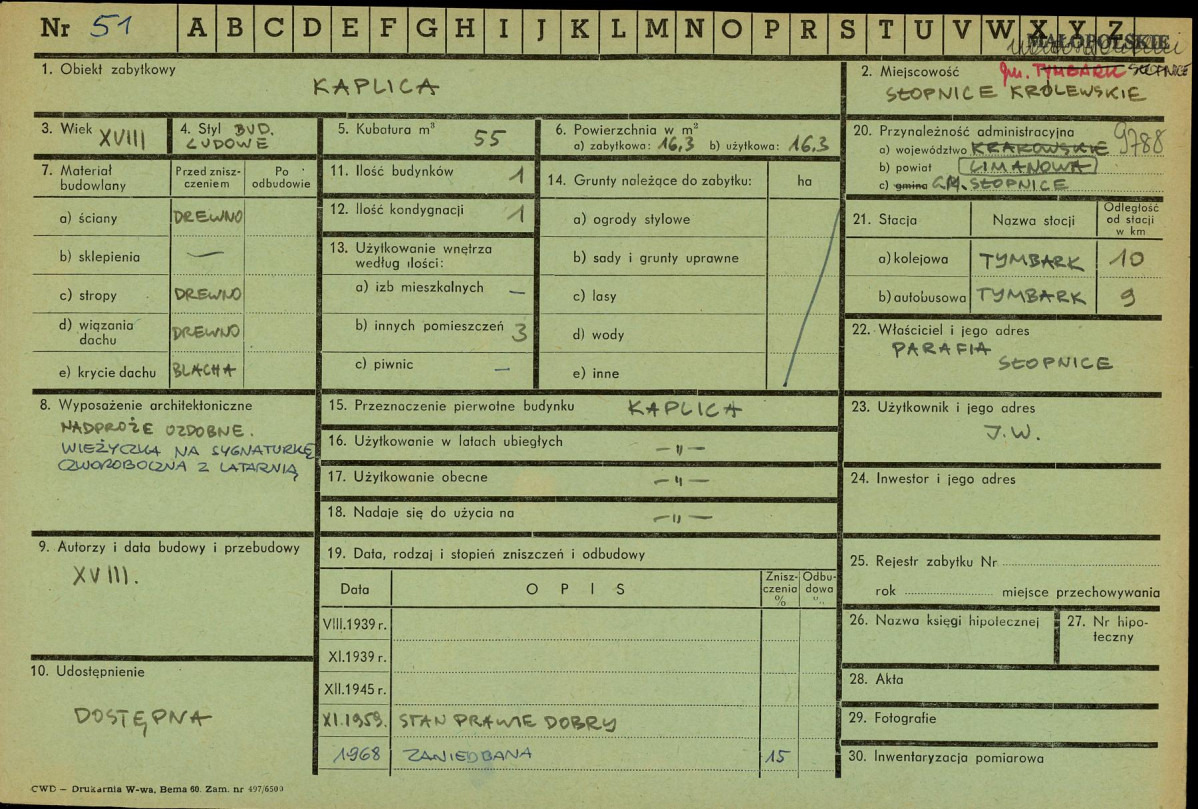 Nr 51 A B C D E F G H I J K L M N O P R S T U V W X Y Z
MAŁOPOLSKIE
1. Obiekt zabytkowy
KAPLICA
2. Miejscowość gm. TYMBARK SŁOPNICE
SŁOPNICE KRÓLEWSKIE
3. Wiek XVIII
4. Styl BUD. LUDOWE
5. Kubatura m³ 55
6. Powierzchnia w m²
a) zabytkowa: 16,3 b) użytkowa: 16,3
7. Materiał budowlany
Przed zniszczeniem
Po odbudowie
a) ściany DREWNO
b) sklepienia —
c) stropy DREWNO
d) wiązania dachu DREWNO
e) krycie dachu BLACHA
8. Wyposażenie architektoniczne
NADPROŻE OZDOBNE.
WIEŻYCZKA NA SYGNATURKĘ
CZWOROBOCZNA Z LATARNIĄ
9. Autorzy i data budowy i przebudowy
XVIII.
10. Udostępnienie
DOSTĘPNA
11. Ilość budynków 1
12. Ilość kondygnacji 1
13. Użytkowanie wnętrza
według ilości:
a) izb mieszkalnych —
b) innych pomieszczeń 3
c) piwnic —
14. Grunty należące do zabytku: ha
a) ogrody stylowe
b) sady i grunty uprawne
c) lasy
d) wody
e) inne
15. Przeznaczenie pierwotne budynku KAPLICA
16. Użytkowanie w latach ubiegłych —"—
17. Użytkowanie obecne —"—
18. Nadaje się do użycia na —"—
19. Data, rodzaj i stopień zniszczeń i odbudowy
Data OPIS Zniszczenia % Odbudowa %
VIII.1939 r.
XI.1939 r.
XII.1945 r.
XI.1959. STAN PRAWIE DOBRY
1968 ZANIEDBANA 15
20. Przynależność administracyjna 9788
a) województwo KRAKOWSKIE
b) powiat LIMANOWA
c) gmina GM. SŁOPNICE
21. Stacja Nazwa stocji Odległość od stacji w km
a) kolejowa TYMBARK 10
b) autobusowa TYMBARK 9
22. Właściciel i jego adres
PARAFIA
SŁOPNICE
23. Użytkownik i jego adres
J.W.
24. Inwestor i jego adres
25. Rejestr zabytku Nr
rok miejsce przechowywania
26. Nazwa księgi hipotecznej
27. Nr hipoteczny
28. Akta
29. Fotografie
30. Inwentaryzacja pomiarowa
CWD — Drukarnia W-wa, Bema 60. Zam. nr 497/6500